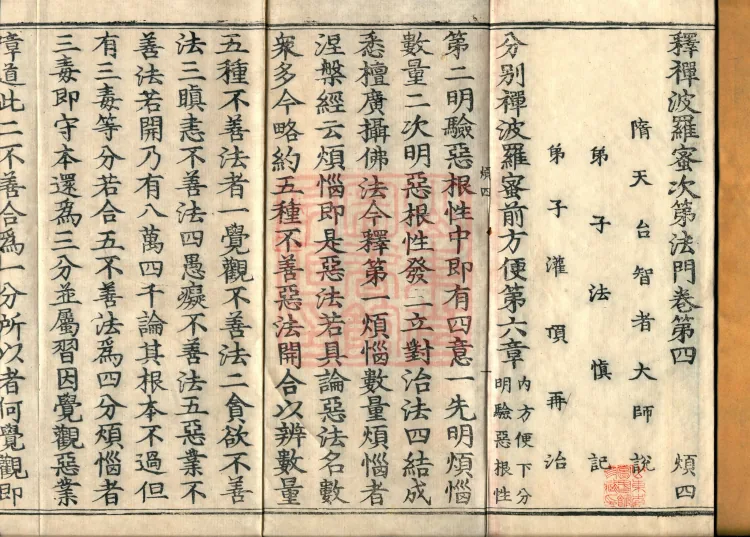 釋禪波羅蜜次第法門卷第四 煩四
隋天台智者大師說
弟子法慎記
弟子灌頂再治
分別禪波羅蜜前方便第六章 內方便下分
明驗惡根性
煩四
第二明驗惡根性中即有四意一先明煩惱
數量二次明惡根性發三立對治法四結成
悉檀廣攝佛法今釋第一煩惱數量煩惱者
涅槃經云煩惱即是惡法若具論惡法名數
衆多今略約五種不善惡法開合以辨數量
五種不善法者一覺觀不善法二貪欲不善
法三瞋恚不善法四愚癡不善法五惡業不
善法若開乃有八萬四千論其根本不過但
有三毒等分若合五不善法爲四分煩惱者
三毒即守本還爲三分並屬習因覺觀惡業
障道此二不善合爲一分所以者何覺觀即